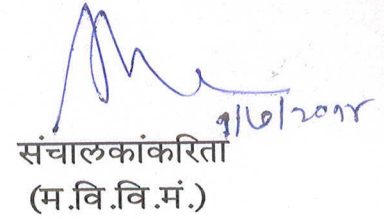 १/७/२०१४
संचालकांकरिता
(म.वि.वि.मं.)